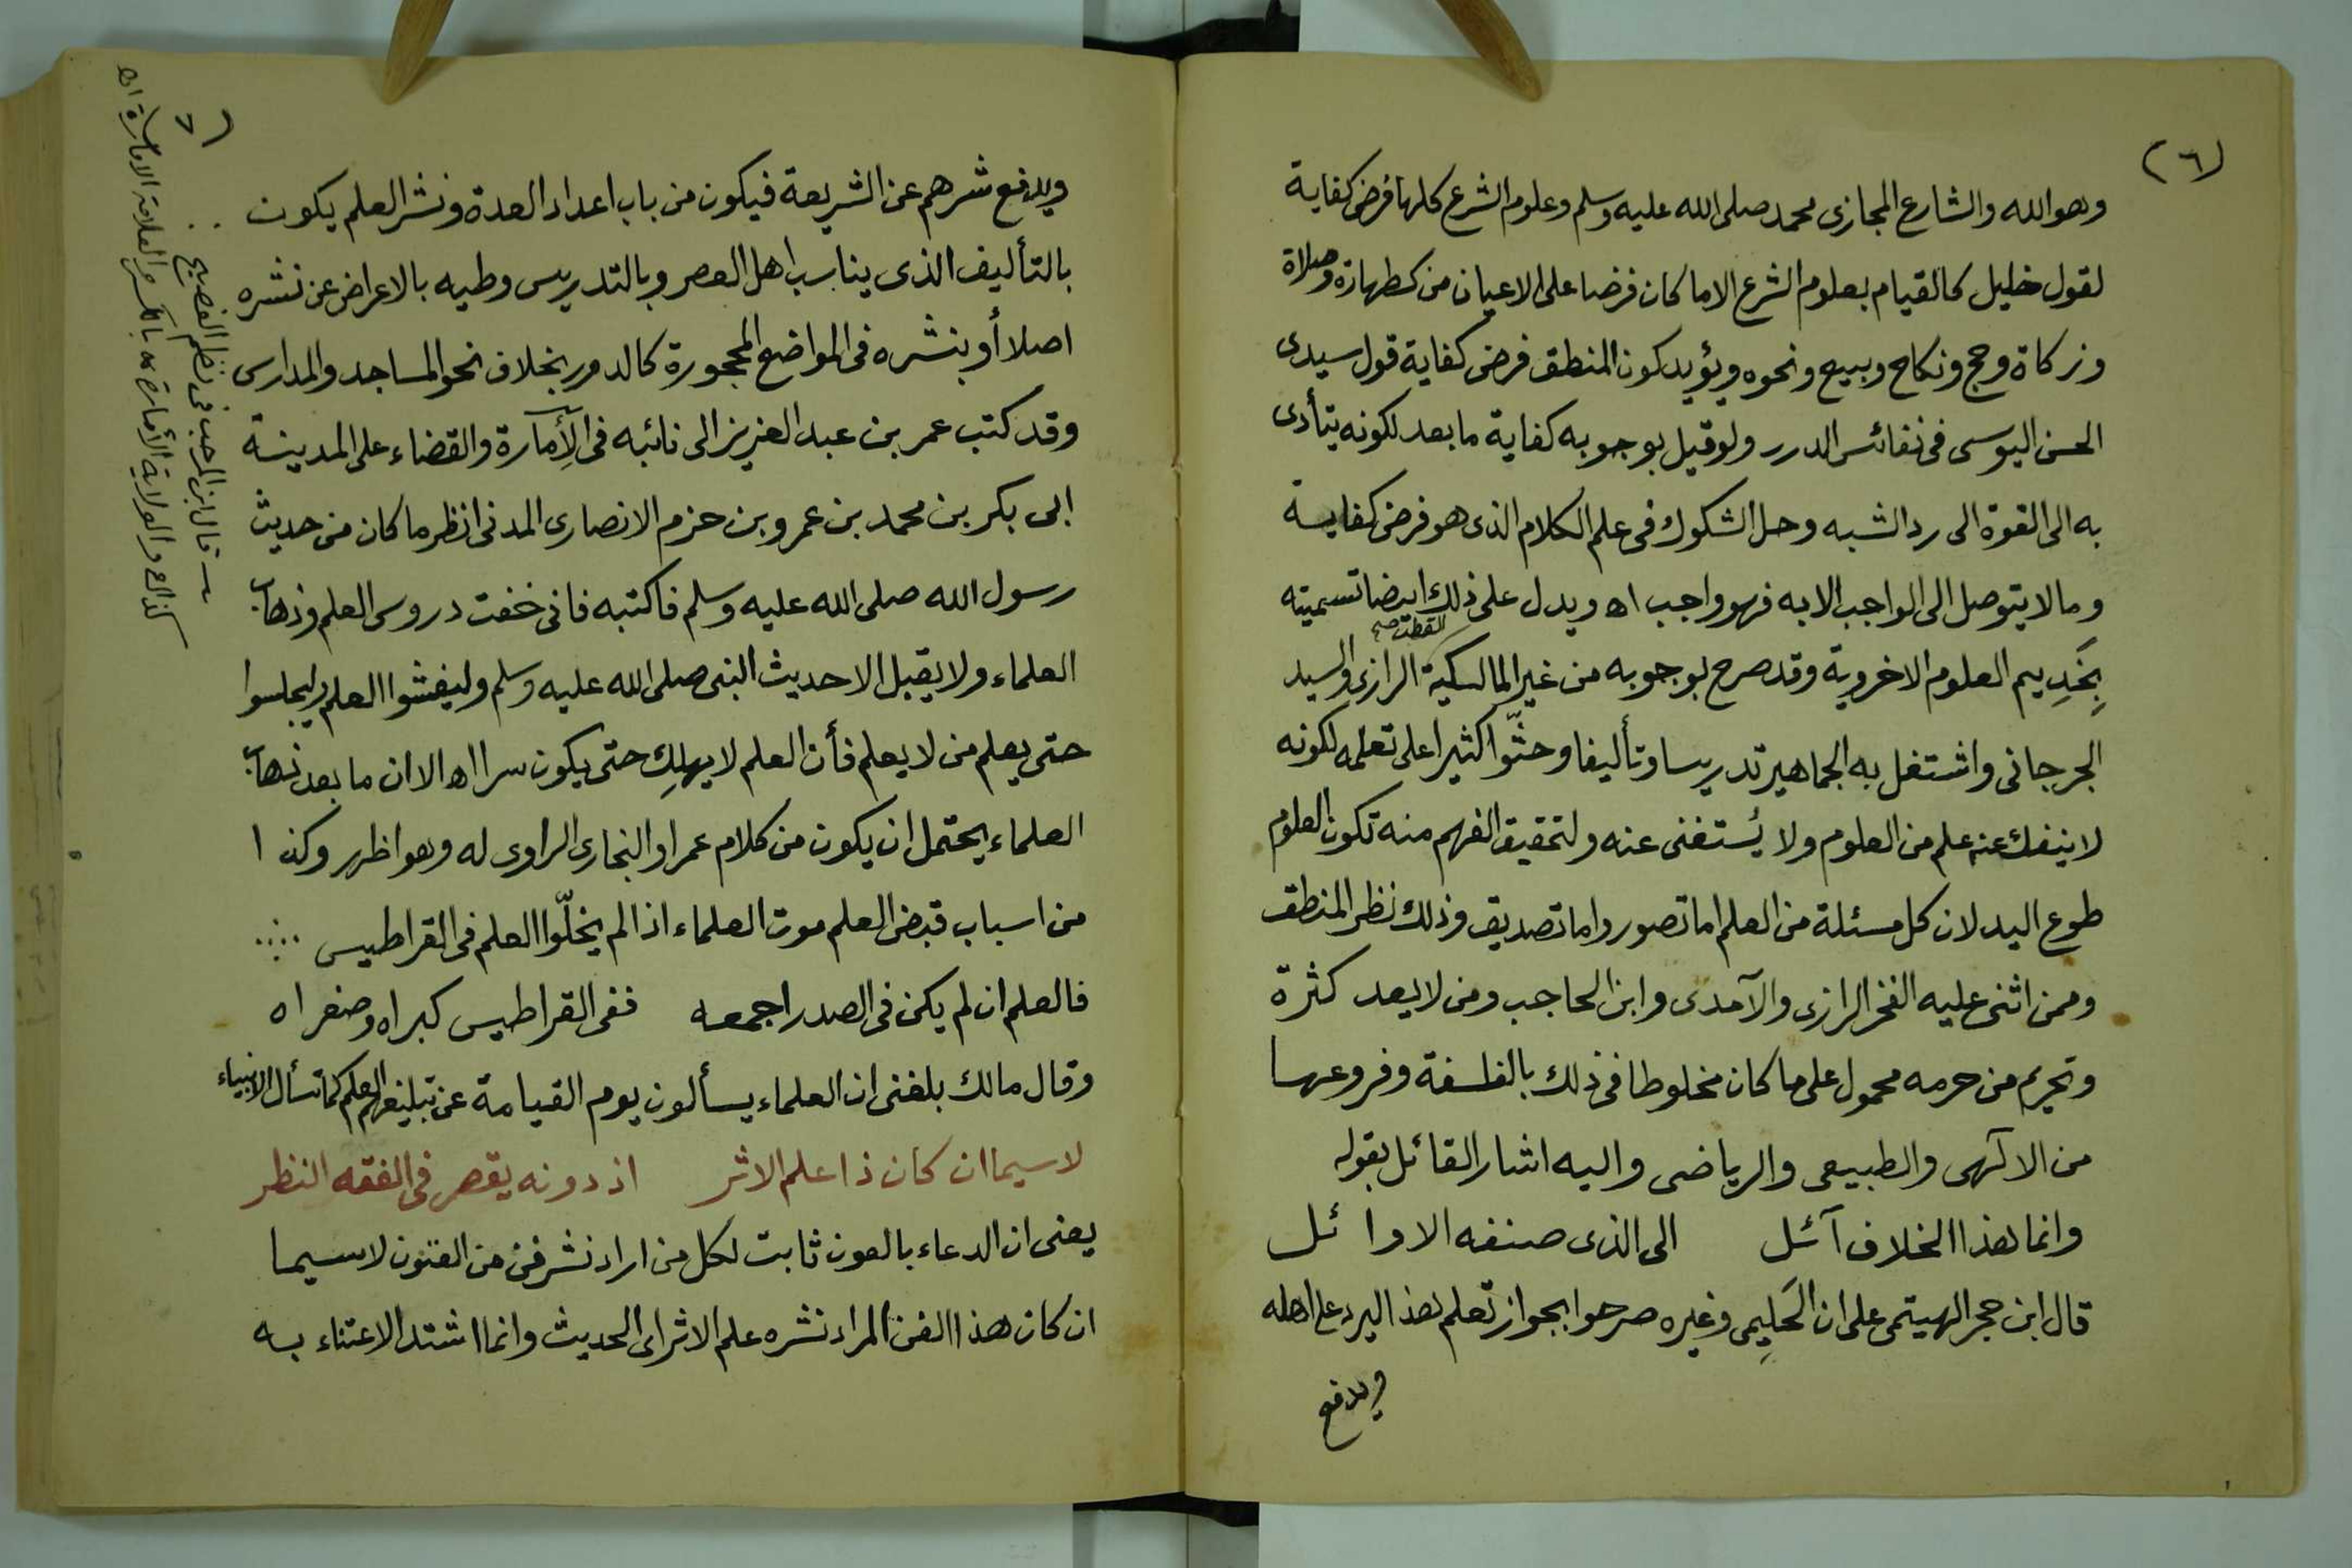 (٦)
وهو الله والشارع المجازى محمد صلى الله عليه وسلم وعلوم الشرع كلها فرض كفاية
لقول خليل كالقيام بعلوم الشرع الا ما كان فرضا على الاعيان من كطهارة وصلاة
وزكاة وحج ونكاح وبيع ونحوه ويؤيد كون المنطق فرض كفاية قول سيدى
الحسن اليوسى فى نفائس الدرر ولو قيل بوجوبه كفاية ما بعد لكونه يتأدى
به الى القوة الى رد الشبه وحل الشكوك فى علم الكلام الذى هو فرض كفاية
وما لا يتوصل الى الواجب الا به فهو واجب اه ويدل على ذلك ايضا تسميته
بخَدِيم العلوم الاخروية وقد صرح بوجوبه من غير المالكية القطب صح الرازى والسيد
الجرجانى واشتغل به الجماهير تدريسا وتأليفا وحثّوا كثيرا على تعلمه لكونه
لا ينفك عنه علم من العلوم ولا يُستغنى عنه ولتحقيق الفهم منه تكون العلوم
طوع اليد لان كل مسئلة من العلم اما تصور واما تصديق وذلك نظر المنطق
وممن اثنى عليه الفخر الرازى والآمدى وابن الحاجب ومن لا يعد كثرة
وتحريم من حرمه محمول على ما كان مخلوطا فى ذلك بالفلسفة وفروعها
من الالهى والطبيعى والرياضى واليه اشار القائل بقوله
وانما هذا الخلاف آئل الى الذى صنفه الاوائل
قال ابن حجر الهيتمى على ان الحَلِيمى وغيره صرحوا بجواز تعلم هذا اليرد على اهله
ويدفع
(٧
ويدفع شرهم عن الشريعة فيكون من باب اعداد العدة ونشر العلم يكون
بالتأليف الذى يناسب اهل العصر وبالتدريس وطيه بالاعراض عن نشره
اصلا أو بنشره فى المواضع المحجورة كالدور بخلاف نحو المساجد والمدارس
وقد كتب عمر بن عبد العزيز الى نائبه فى الأِمارة والقضاء على المدينة
ابى بكر بن محمد بن عمرو بن حزم الانصارى المدنى انظر ما كان من حديث
رسول الله صلى الله عليه وسلم فاكتبه فانى خفت دروس العلم وذهاب
العلماء ولا يقبل الا حديث النبى صلى الله عليه وسلم وليفشوا العلم وليجلسوا
حتى يعلم من لا يعلم فأن العلم لا يهلِك حتى يكون سرا اه الا ان ما بعد ذهاب
العلماء يحتمل ان يكون من كلام عمر او البخارى الراوى له وهو اظهر وكذا
من اسباب قبض العلم موت العلماء اذا لم يخلّوا العلم فى القراطيس
فالعلم ان لم يكن فى الصدر اجمعه ففى القراطيس كبراه وصغراه
وقال مالك بلغنى ان العلماء يسألون يوم القيامة عن تبليغهم العلم كما تسأل الانبياء
لا سيما ان كان ذا علم الاثر اذ دونه يقصر فى الفقه النظر
يعنى ان الدعاء بالعون ثابت لكل من اراد نشر فن من الفنون لا سيما
ان كان هذا الفن المراد نشره علم الاثر اى الحديث وانما اشتد الاعتناء به
قال ابن المرحب فى نظم الفصيح
والولاية الأمارة بالكسر والعلامة الامارة اه